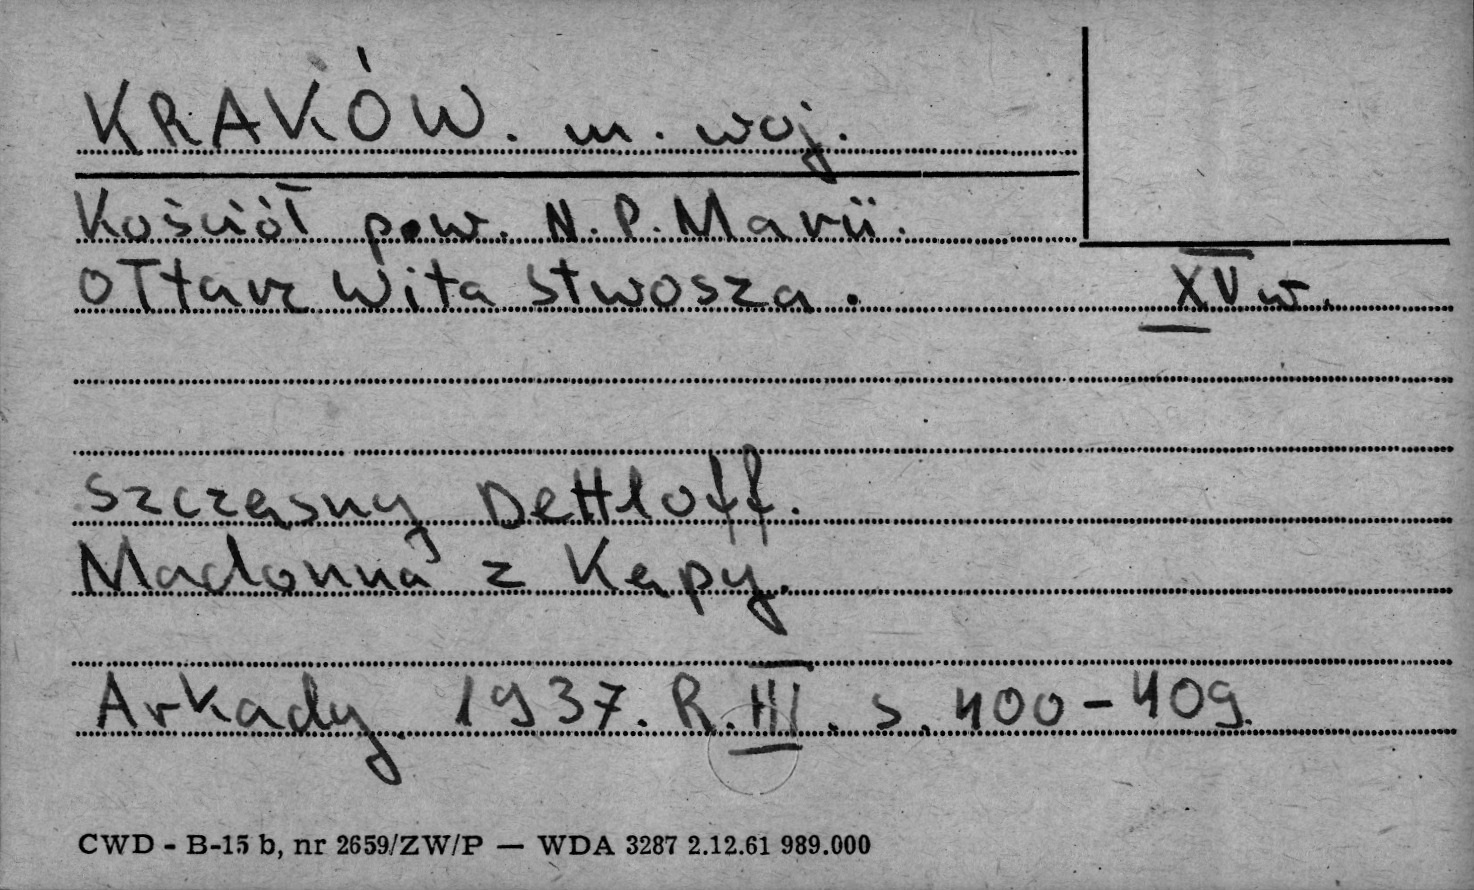 KRAKÓW. m. woj.
Kościół pow. N.P. Marii.
ołtarz Wita Stwosza. XV w.
Szczęsny Dettloff.
Madonna z Kępy.
Arkady 1937. R. III. s. 400-409.
CWD - B-15 b, nr 2659/ZW/P — WDA 3287 2.12.61 989.000